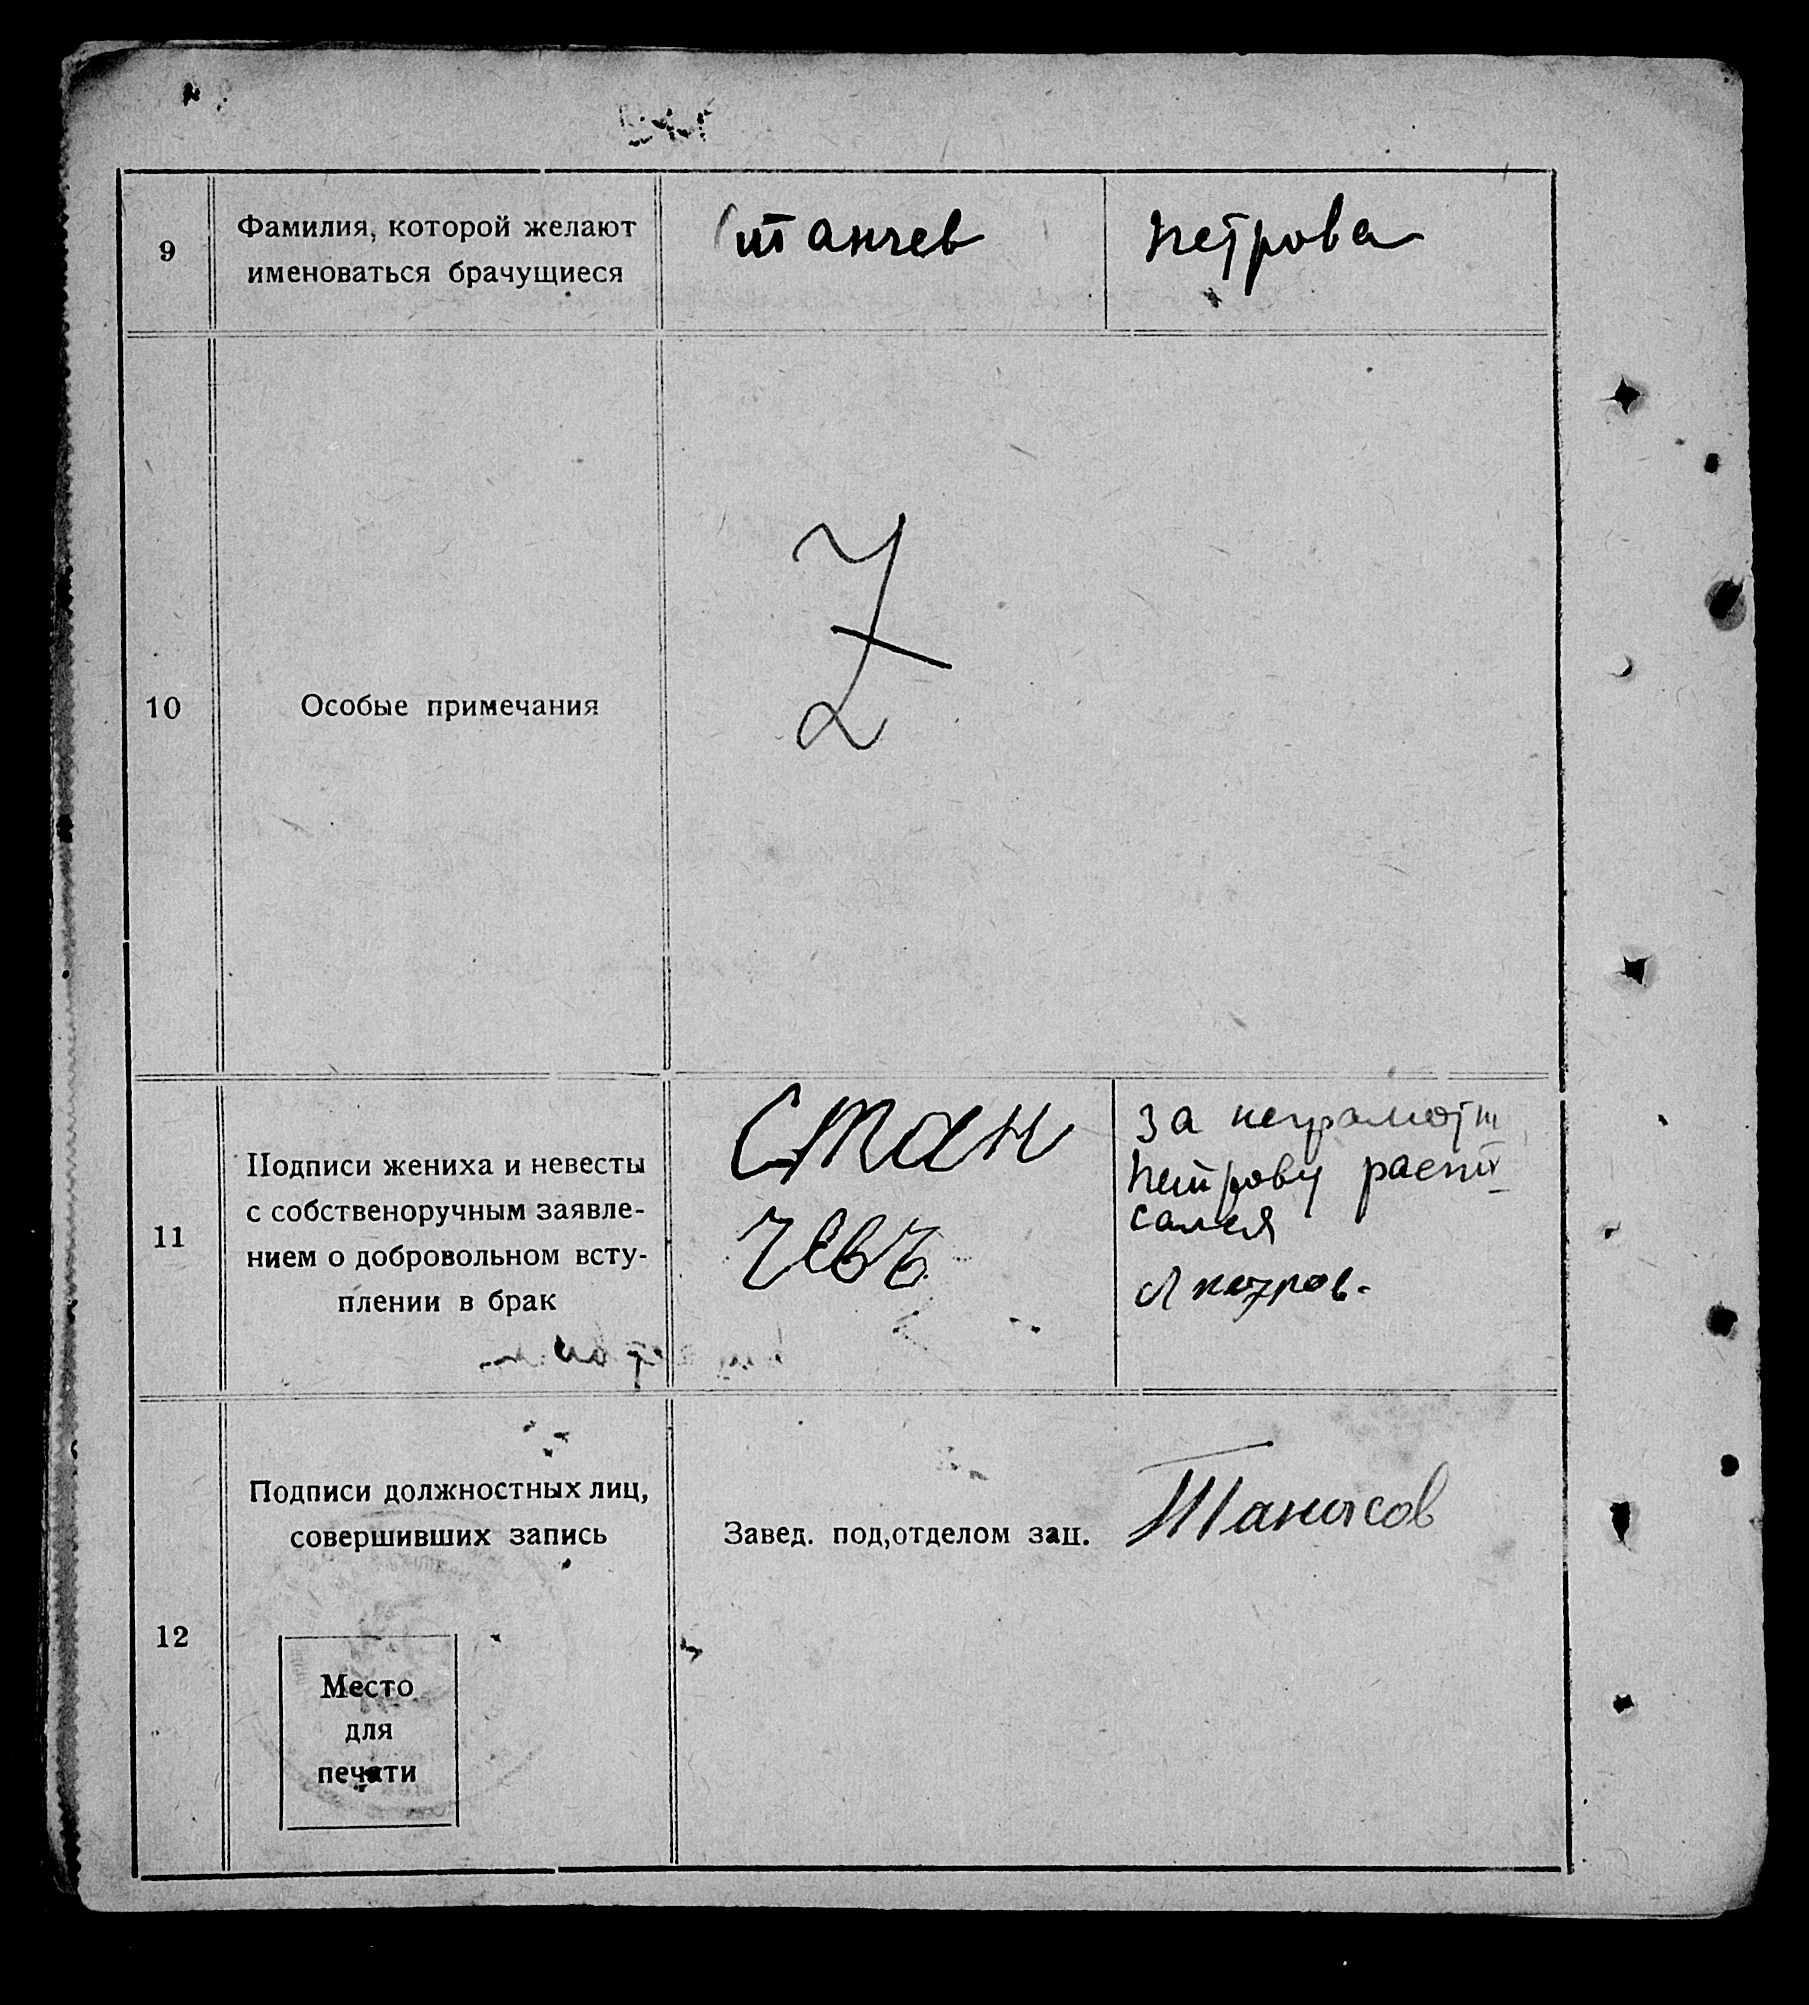 9
Фамилия, которой желают
именоваться брачущиеся
Станчев
Петрова
10
Особые примечания
Z
11
Подписи жениха и невесты
с собственоручным заявле-
нием о добровольном всту-
плении в брак
Стан
чевъ
За неграмотн
Петрову распи
сался
Петров.
12
Подписи должностных лиц,
совершивших запись
Место
для
печати
Завед. под,отделом зац.